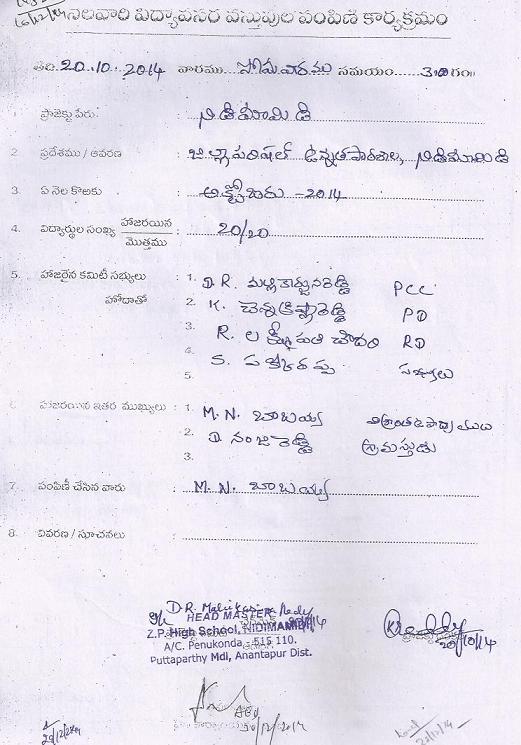 16/12/14
నెలవారి విద్యావసర వస్తువుల పంపిణి కార్యక్రమం
తేది 20..10..2014 వారము సోమవారము సమయం 3.00గం.
1. ప్రాజెక్టు పేరు : నిడిమామిడి
2. ప్రదేశము / ఆవరణ : జిల్లా పరిషత్ ఉన్నత పాఠశాల, నిడిమామిడి
3. ఏ నెల కొఱకు : అక్టోబరు - 2014
4. విద్యార్థుల సంఖ్య హాజరయిన / మొత్తము : 20/20
5. హాజరైన కమిటీ సభ్యులు : 1. D.R. మల్లికార్జునరెడ్డి PCC
హోదాతో 2. K. చెన్నక్రిష్ణారెడ్డి PD
3. R. లక్ష్మీపతి చౌదరి RD
4. S. సభ్యులు
5.
6. హాజరయిన ఇతర ముఖ్యులు : 1. M.N. బాబయ్య
2. D. నంజిరెడ్డి గ్రామస్తుడు
3.
7. పంపిణీ చేసిన వారు : M.N. బాబయ్య
8. వివరణ / సూచనలు :
D.R. Mallikarjuna Reddy
HEAD MASTER
Z.P. High School, NIDIMAMIDI
A/C. Penukonda, 515 110.
Puttaparthy Mdl, Anantapur Dist.
20/10/14